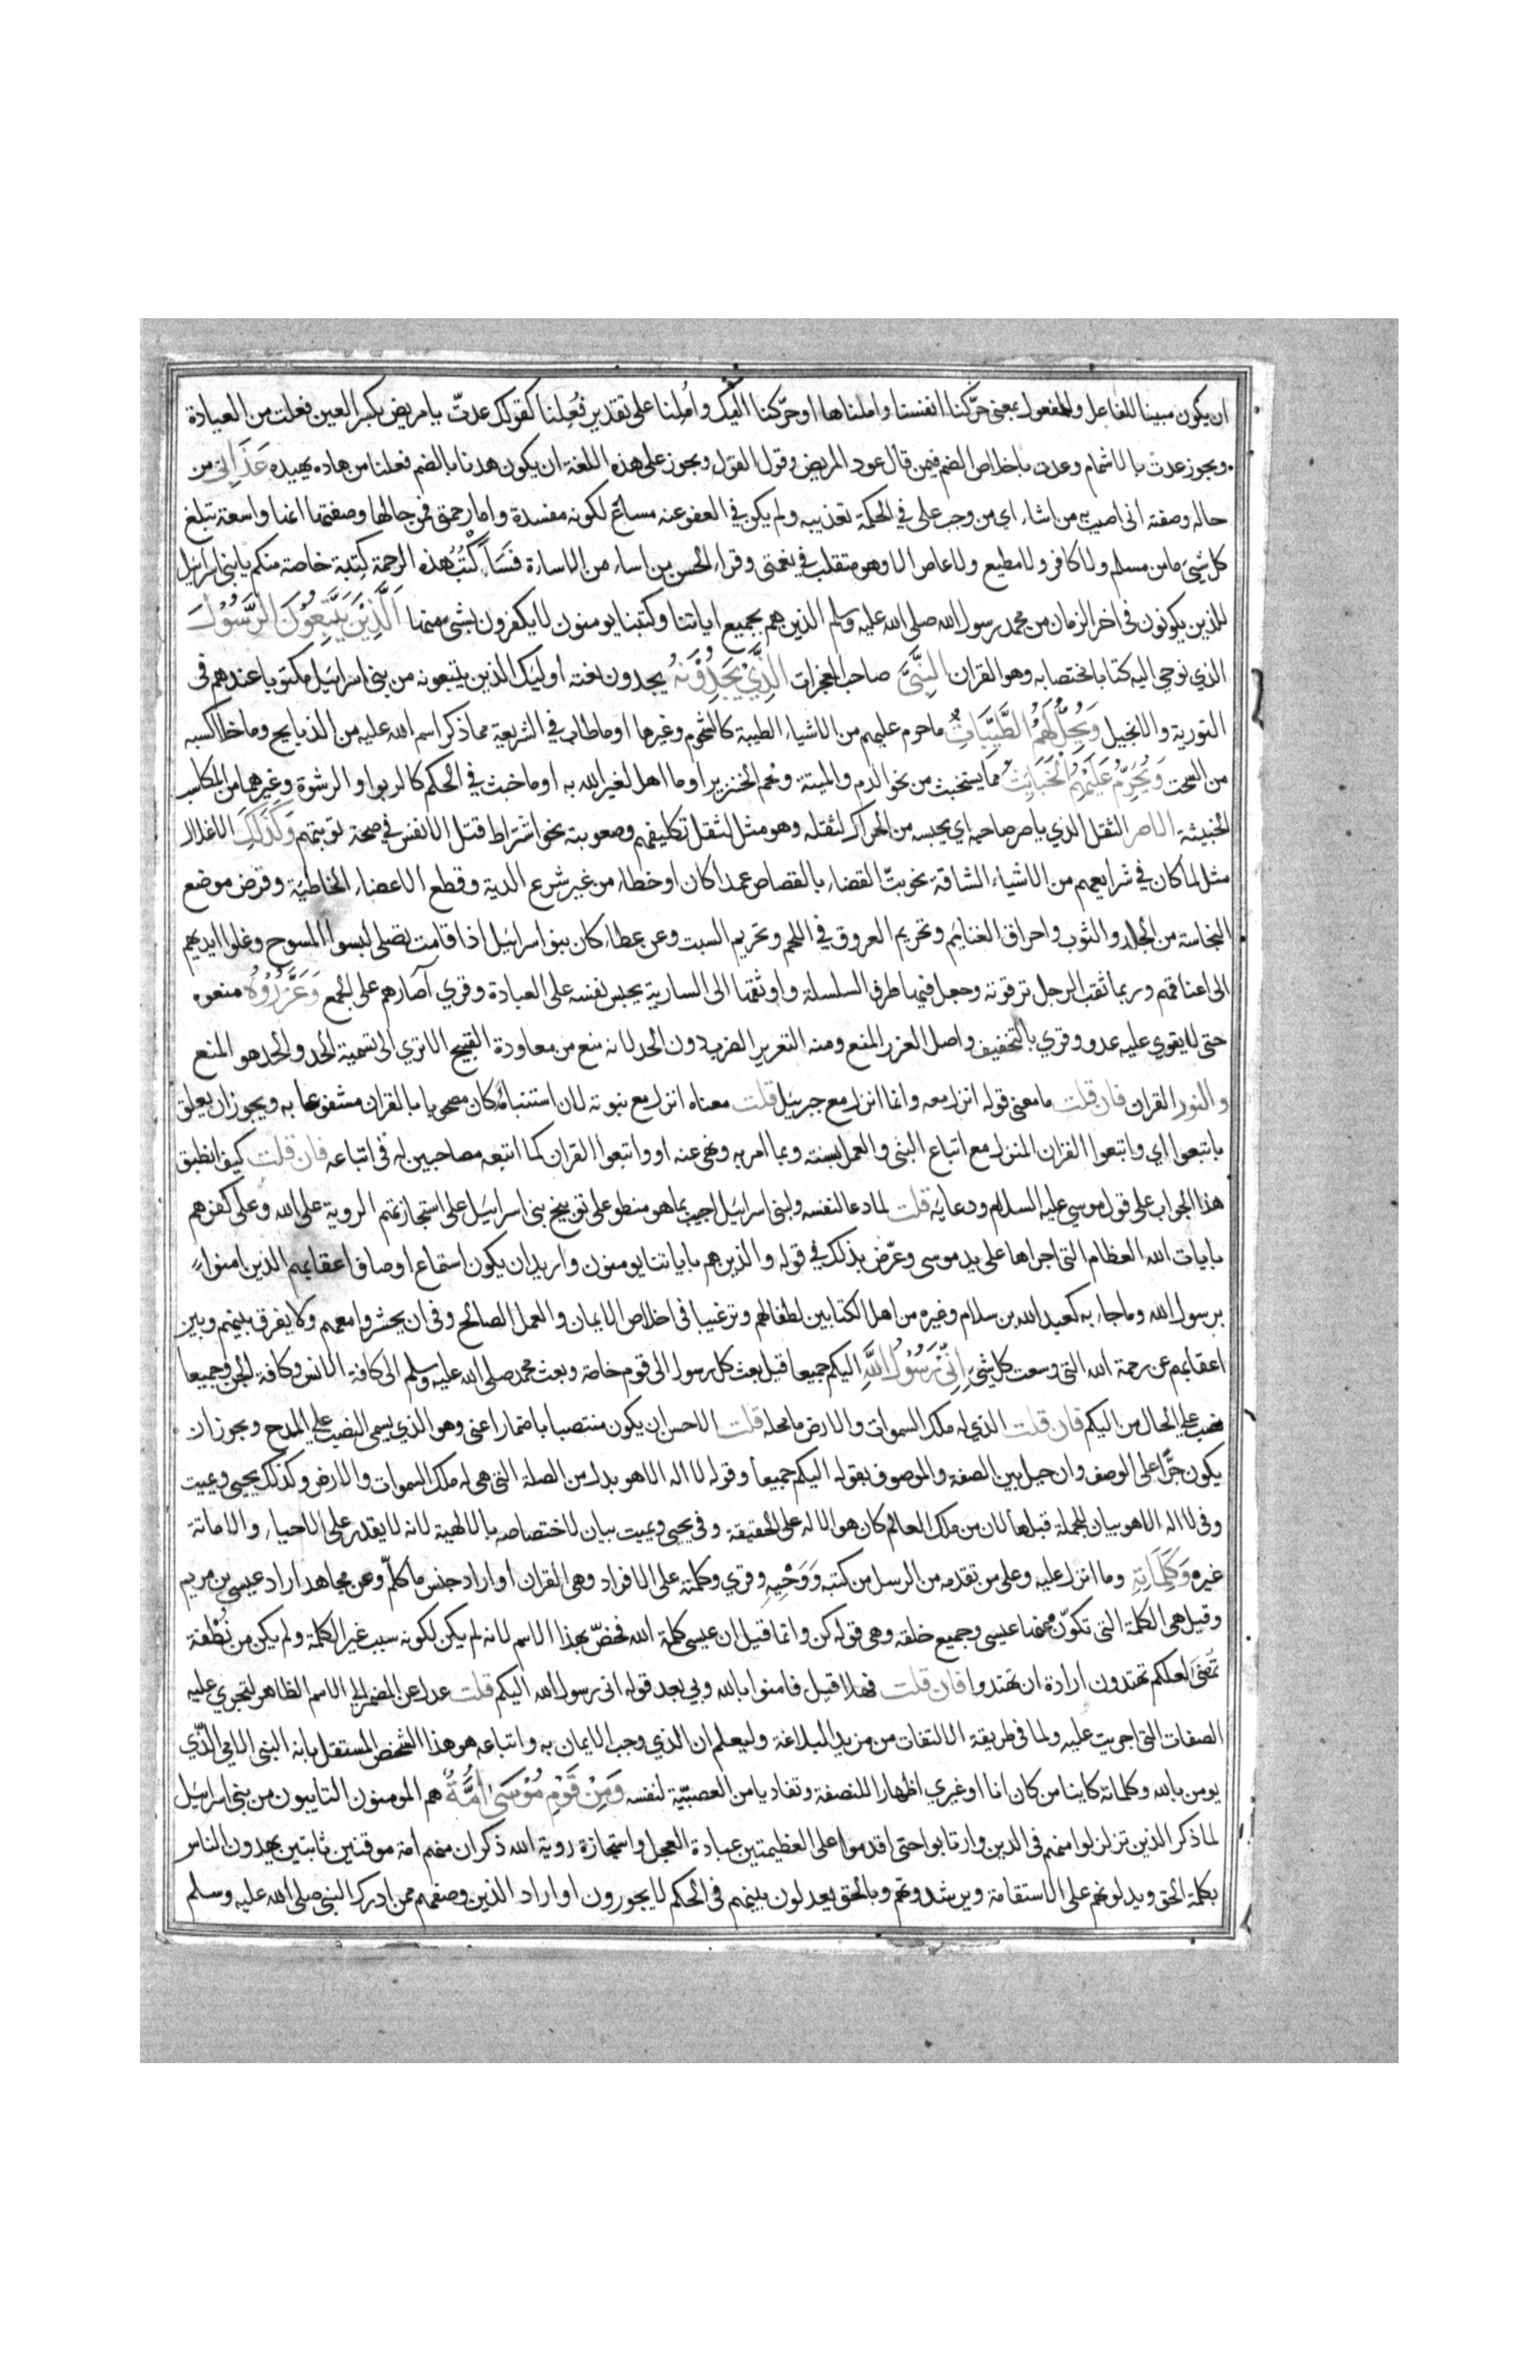 ان يكون مبينا للفاعل والمفعول بمعنى حرّكنا انفسنا واملناها او حرّكنا اليك واُمِلنا على تقدير فُعِلنا كقولك عدتّ يا مريض بكسر العين فعلت من العيادة
ويجوز عدت بالاشمام وعدت باخلاص الضم فيمن قال عود المريض وقول القول ويجوز على هذه اللغة ان يكون هدنا بالضم فعلنا من هاده يهيده عَذَابِى من
حاله وصفته انى اصيب به من اشاء اى من وجب على في الحكمة تعذيبه ولم يكن في العفو عنه مساغ لكونه مفسدة واما رحمتى فمن حالها وصفتها انها واسعة تبلغ
كل شىء ما من مسلم ولا كافر ولا مطيع ولا عاص الا وهو متقلب في نعمتى وقراء الحسن من اساء من الاساءة فَسَاَكْتُبُ هذه الرحمة كتبة خاصة منكم يا بنى اسرائيل
للذين يكونون فى اخر الزمان من محمد رسول الله صلى الله عليه وسلم الذين هم بجميع اياتنا وكتبنا يومنون لا يكفرون بشى منها اَلَّذِيْنَ يَتَّبِعُوْنَ الرَّسُوْلَ
الذي نوحى اليه كتابا مختصا به وهو القران النَّبِىَّ صاحب المعجزات الَّذِىْ يَجِدُوْنَهُ يجدون نعته اوليك الذين يتبعونه من بنى اسرائيل مكتوبا عندهم فى
التورية والانجيل وَيُحِلُّ لَهُمُ الطَّيِّبَاتِ ما حرم عليهم من الاشياء الطيبة كالشحوم وغيرها او ما طاب في الشريعة مما ذكر اسم الله عليه من الذبايح وما خلا كسبه
من السحت وَيُحَرِّمُ عَلَيْهِمُ الْخَبَايِثَ مما يستخبث من نحو الدم والميتة ولحم الخنزير او ما اهل لغير الله به او ما خبث في الحكم كالربوا والرشوة وغيرهما من المكاسب
الخبيثة الاصر الثقل الذي ياصر صاحبه اي يحبسه من الحراك لثقله وهو مثل لثقل تكليفهم وصعوبته نحو اشتراط قتل الانفس في صحة توبتهم وَكَذَلِكَ الاغلال
مثل لما كان في شرايعهم من الاشياء الشاقة نحو بتّ القضاء بالقصاص عمدا كان او خطاء من غير شرع الدية وقطع الاعضاء الخاطئة وقرض موضع
النجاسة من الجلد والثوب واحراق الغنايم وتحريم العروق في اللحم وتحريم السبت وعن عطاء كان بنو اسرائيل اذا قامت تصلى لبسوا المسوح وغلوا ايديهم
الى اعناقهم وربما ثقب الرجل ترقوته وجعل فيها طرف السلسلة واوثقها الى السارية يحبس نفسه على العبادة وقرى آصارهم على الجمع وَعَزَّرُوْهُ منعوه
حتى لا يقوى عليه عدو وقرى بالتخفيف واصل العزر المنع ومنه التعزير الضرب دون الحد لانه منع من معاودة القبيح الا ترى الى تسمية الحد والحد هو المنع
والنور القران فان قلت ما معنى قوله انزل معه وانما انزل مع جبريل قلت معناه انزل مع نبوته لان استنباءه كان مصحوبا بالقران مشفوعا به ويجوز ان يعلق
باتبعوا اي واتبعوا القران المنزل مع اتباع النبى والعمل بسنته وبما امر به ونهى عنه او واتبعوا القران كما اتبعه مصاحبين له فى اتباعه فان قلت كيف انطبق
هذا الجواب على قول موسى عليه السلام ودعايه قلت لما دعا لنفسه ولبنى اسرائيل اجيب بما هو منطو على توبيخ بنى اسرائيل على استجازتهم الروية على الله وعلى كفرهم
بايات الله العظام التى اجراها على يد موسى وعرّض بذلك في قوله والذين هم باياتنا يومنون واريد ان يكون استماع اوصاف اعقابهم الذين امنوا
برسول الله وما جاء به كعبد الله بن سلام وغيره من اهل الكتابين لطفا لهم وترغيبا فى اخلاص الايمان والعمل الصالح وفى ان يحشروا معهم ولا يفرق بينهم وبين
اعقابهم عن رحمة الله التى وسعت كل شىء اِنِّىْ رَسُوْلُ اللَّهِ اليكم جميعا قيل بعث كل رسول الى قوم خاصة وبعث محمد صلى الله عليه وسلم الى كافة الانس وكافة الجن وجميعا
نصب على الحال من اليكم فان قلت الذي له ملك السموات والارض ما محله قلت الاحسن ان يكون منتصبا باضمار اعنى وهو الذي يسمى النصب على المدح ويجوز ان
يكون جرّا على الوصف وان حيل بين الصفة والموصوف بقوله اليكم جميعا وقوله لا اله الا هو بدل من الصلة التى هى له ملك السموات والارض وكذلك يحيى ويميت
وفى لا اله الا هو بيان للجملة قبلها لان من ملك العالم كان هو الاله على الحقيقة وفى يحيى ويميت بيان لاختصاصه بالالهية لانه لا يقدر على الاحياء والاماتة
غيره وَكَلِمَاتِهِ وما انزل عليه وعلى من تقدمه من الرسل من كتبه وَوَحْيِهِ وقرى وكلمته على الافراد وهى القران او اراد جنس ما كلّم وعن مجاهد اراد عيسى بن مريم
وقيل هى الكلمة التى تكوّن عنها عيسى وجميع خلقه وهى قوله كن وانما قيل ان عيسى كلمة الله فخصّ بهذا الاسم لانه لم يكن لكونه سبب غير الكلمة ولم يكن من نُطْفة
تُمْنَى لعلكم تهتدون ارادة ان تهتدوا فان قلت فهلا قيل فامنوا بالله وبى بعد قوله انى رسول الله اليكم قلت عدل عن المضمر الى الاسم الظاهر لتجرى عليه
الصفات التى اجريت عليه ولما فى طريقة الالتفات من مزيد البلاغة وليعلم ان الذي وجب الايمان به واتباعه هو هذا الشخص المستقل بانه النبى الامى الذّي
يومن بالله وكلماته كاينا من كان انا او غيري اظهارا للنصفة وتفاديا من العصبيّة لنفسه وَمِنْ قَوْمِ مُوْسَى اُمَّةٌ هم المومنون التايبون من بنى اسرائيل
لما ذكر الذين تزلزلوا منهم فى الدين وارتابوا حتى اقدموا على العظيمتين عبادة العجل واستجازة روية الله ذكر ان منهم امة موقنين ثابتين يهدون الناس
بكلمة الحق ويدلونهم على الاستقامة ويرشدونهم وبالحق يعدلون بينهم فى الحكم لا يجورون او اراد الذين وصفهم ممن ادرك النبى صلى الله عليه وسلم